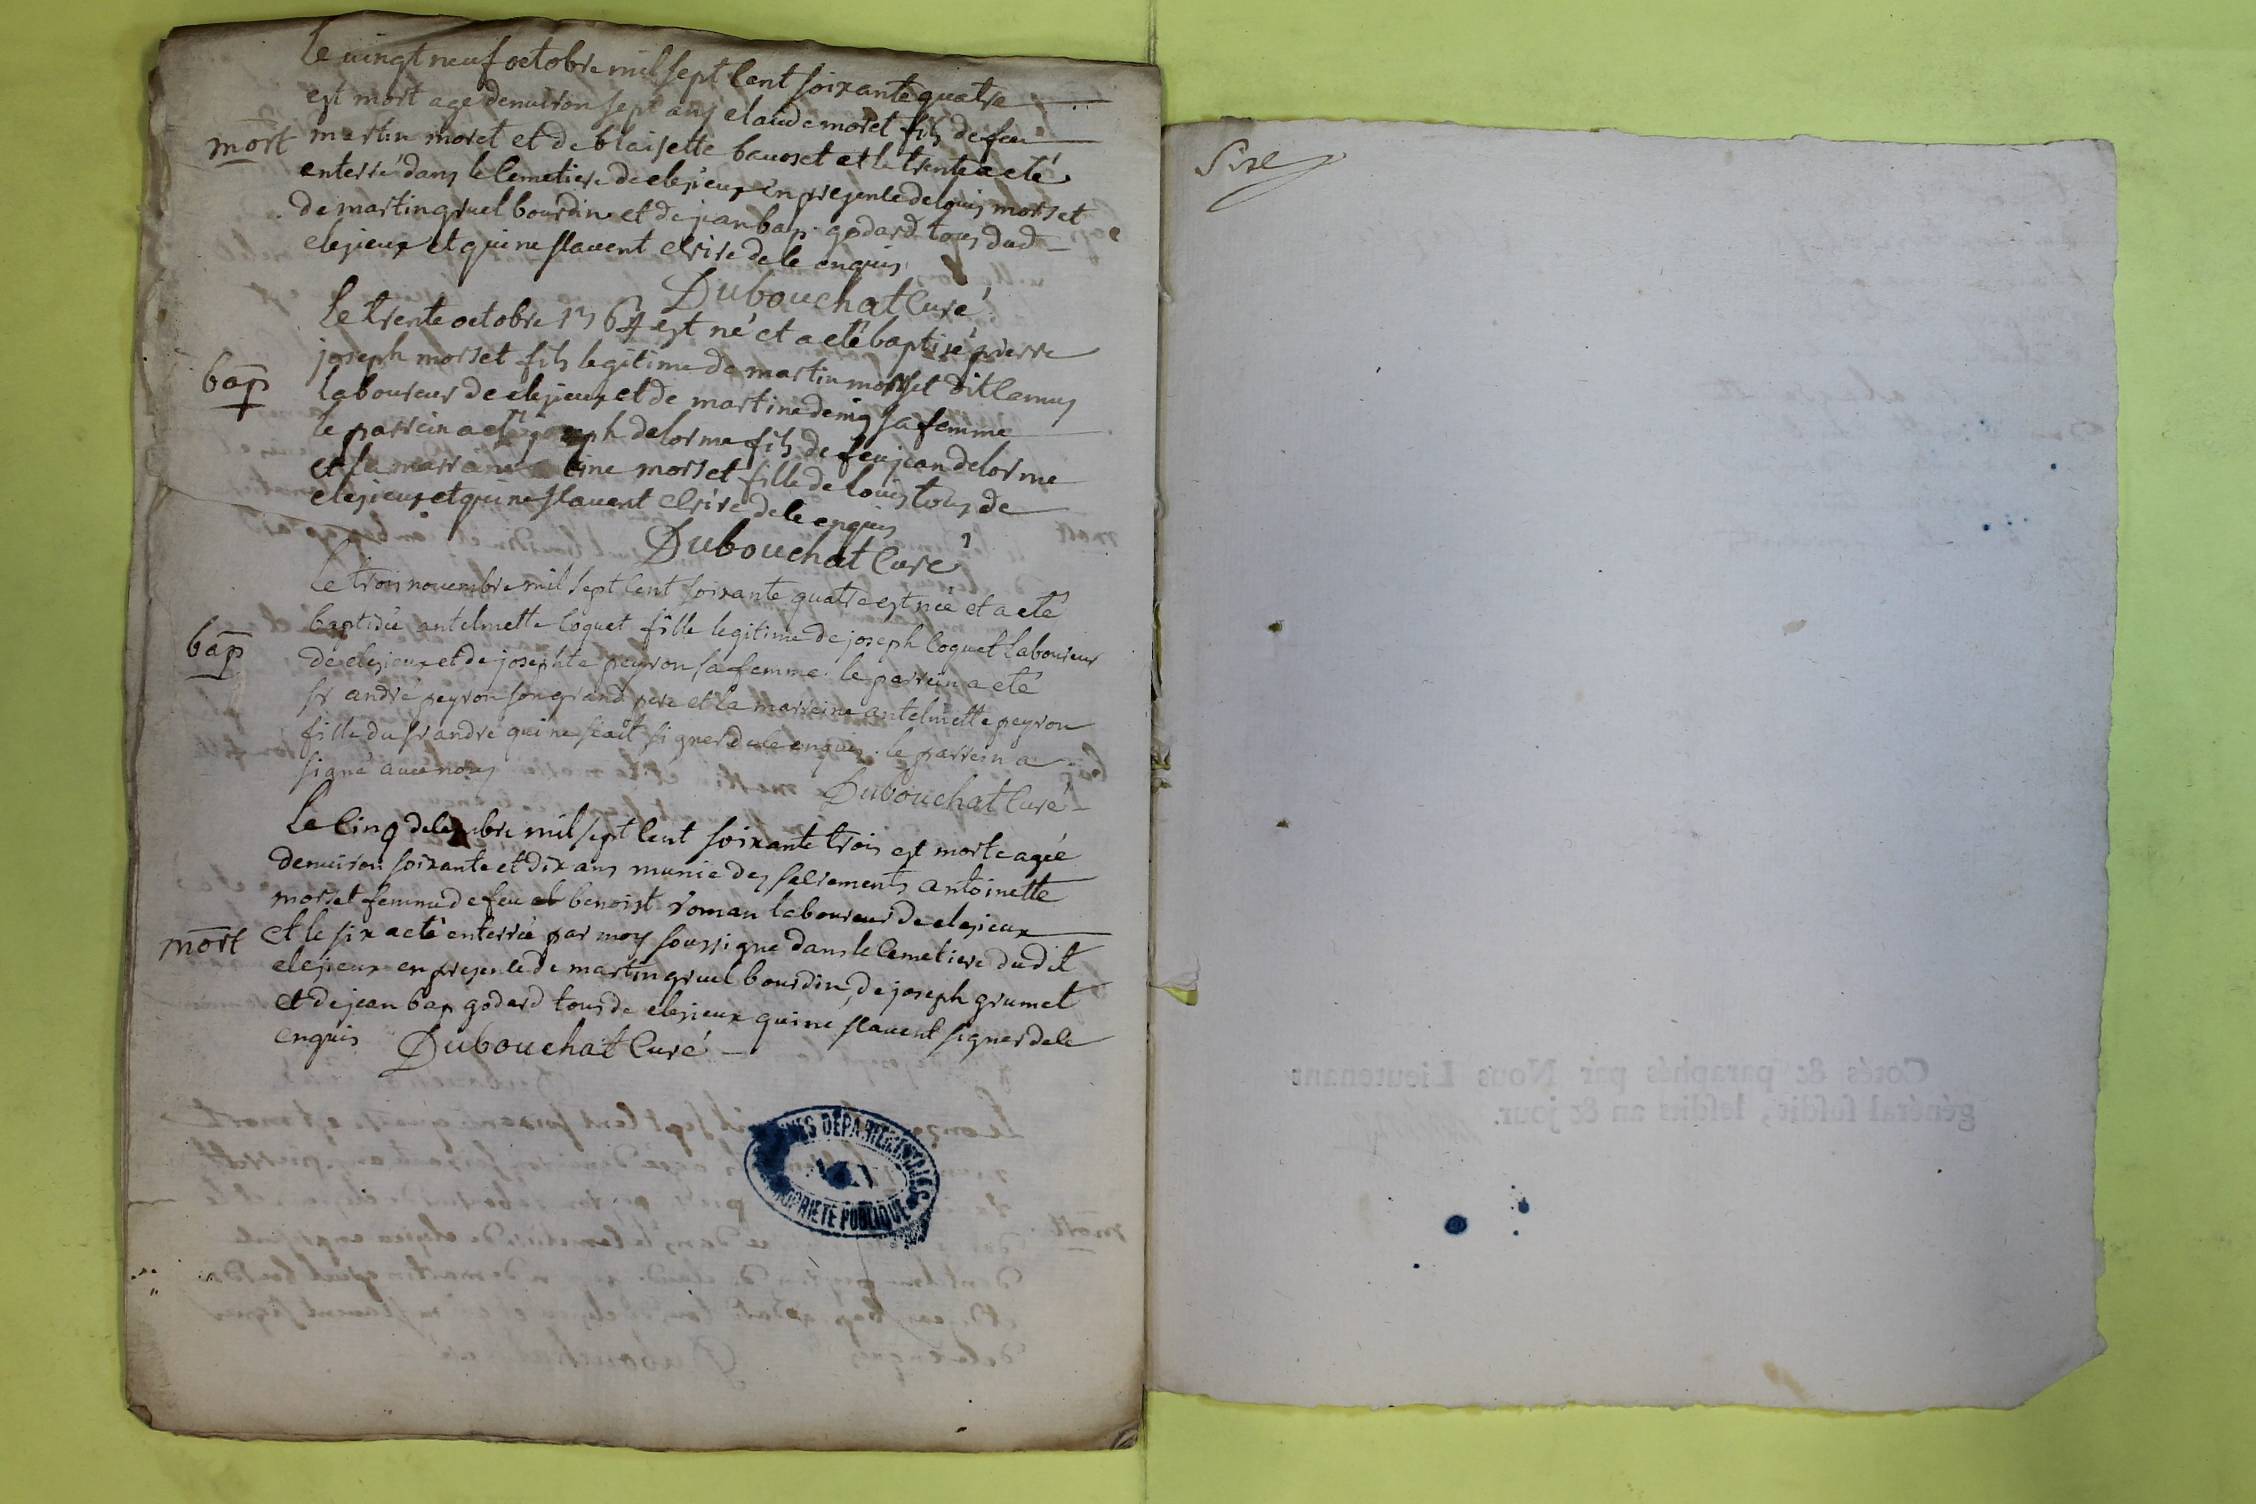 le vingt neuf octobre mil sept cent soixante quatre
est mort agé denuiron sept ans claude moret fils de feu
mort
martin moret et de blaisette bauoset et le trente a eté
enterré dans le cemetiere de clezieux en presence de louis morset
de martin gruel bourdin et de jean bap. godard tous dud
clezieux et qui ne scauent ecrire de ce enquis
Dubouchat curé
le trente octobre 1764 est né et a eté baptisé pierre
bap
joseph morset fils legitime de martin morset dit camus
laboureur de clezieux et de martine denis sa femme
le parrein a eté joseph delorme fils de feu jean delorme
et la marraine morset fille de louis tous de
clezieux et qui ne scauent ecrire de ce enquis
Dubouchat curé
le trois nouembre mil sept cent soixante quatre est née et a eté
bap
baptisée antelmette coquet fille legitime de joseph coquet laboureur
de clezieux et de josephte peyron sa femme. le parrein a eté
sr andré peyron son grand pere et la marreine antelmette peyron
fille du sr andré qui ne scait signer de ce enquis. le parrein a
signé auec nous
Dubouchat curé
le cinq decembre mil sept cent soixante trois est morte agée
denuiron soixante et dix ans munie des sacrements antoinette
morset femme de feu benoist roman laboureur de clezieux
mort
et le six a eté enterrée par moy soussigné dans le cemetiere dudit
clezieux en presence de martin gruel bourdin, de joseph grumet
et de jean bap godard tous de clezieux qui ne scauent signer de ce
enquis Dubouchat curé
DÉPARTEMENTALES
AIN
PROPRIÉTÉ PUBLIQUE
Cotés & paraphés par Nous Lieutenant
général susdit, lesdits an & jour.